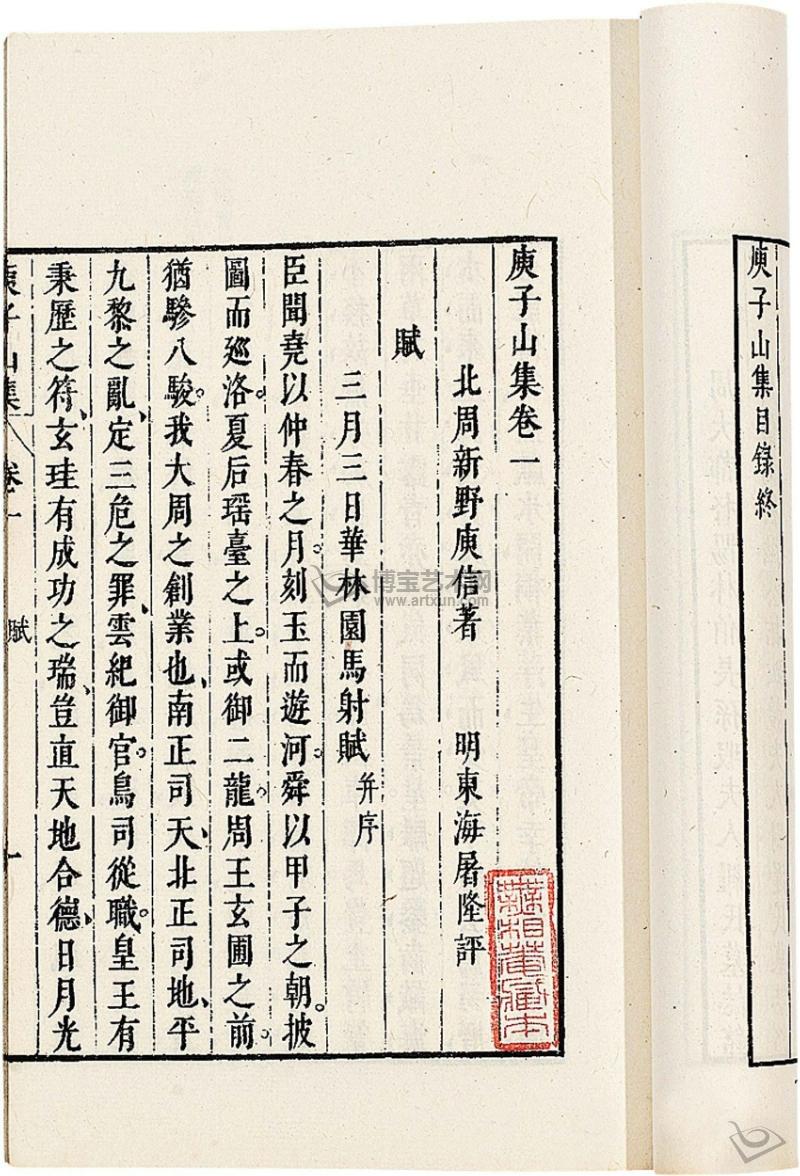 庾子山集目錄終
庾子山集卷一
北周新野庾信著 明東海屠隆評
賦
三月三日華林園馬射賦 并序
臣聞堯以仲春之月。刻玉而遊河。舜以甲子之朝。披
圖而廵洛。夏后瑶臺之上。或御二龍。周王玄圃之前。
猶驂八駿。我大周之創業也、南正司天、北正司地、平
九黎之亂、定三危之罪、雲紀御官。鳥司從職。皇王有
秉歷之符、玄珪有成功之瑞、豈直天地合德、日月光
庾子山集 卷一 賦 一
藏本
博宝艺术网
www.artxun.com